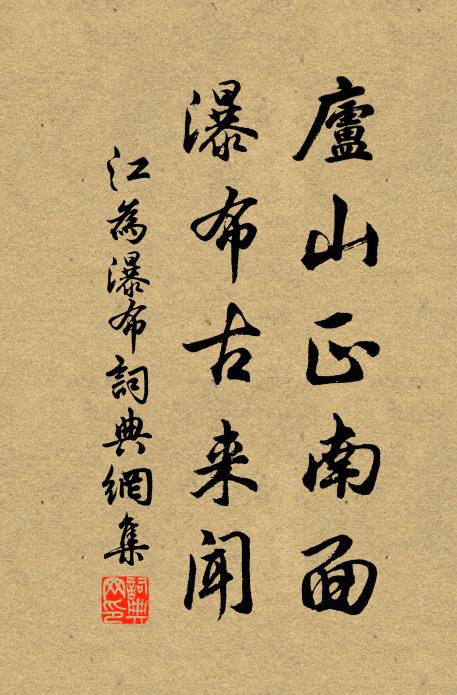 廬山正南面
瀑布古来聞
江為瀑布詞典網集
詞典網印